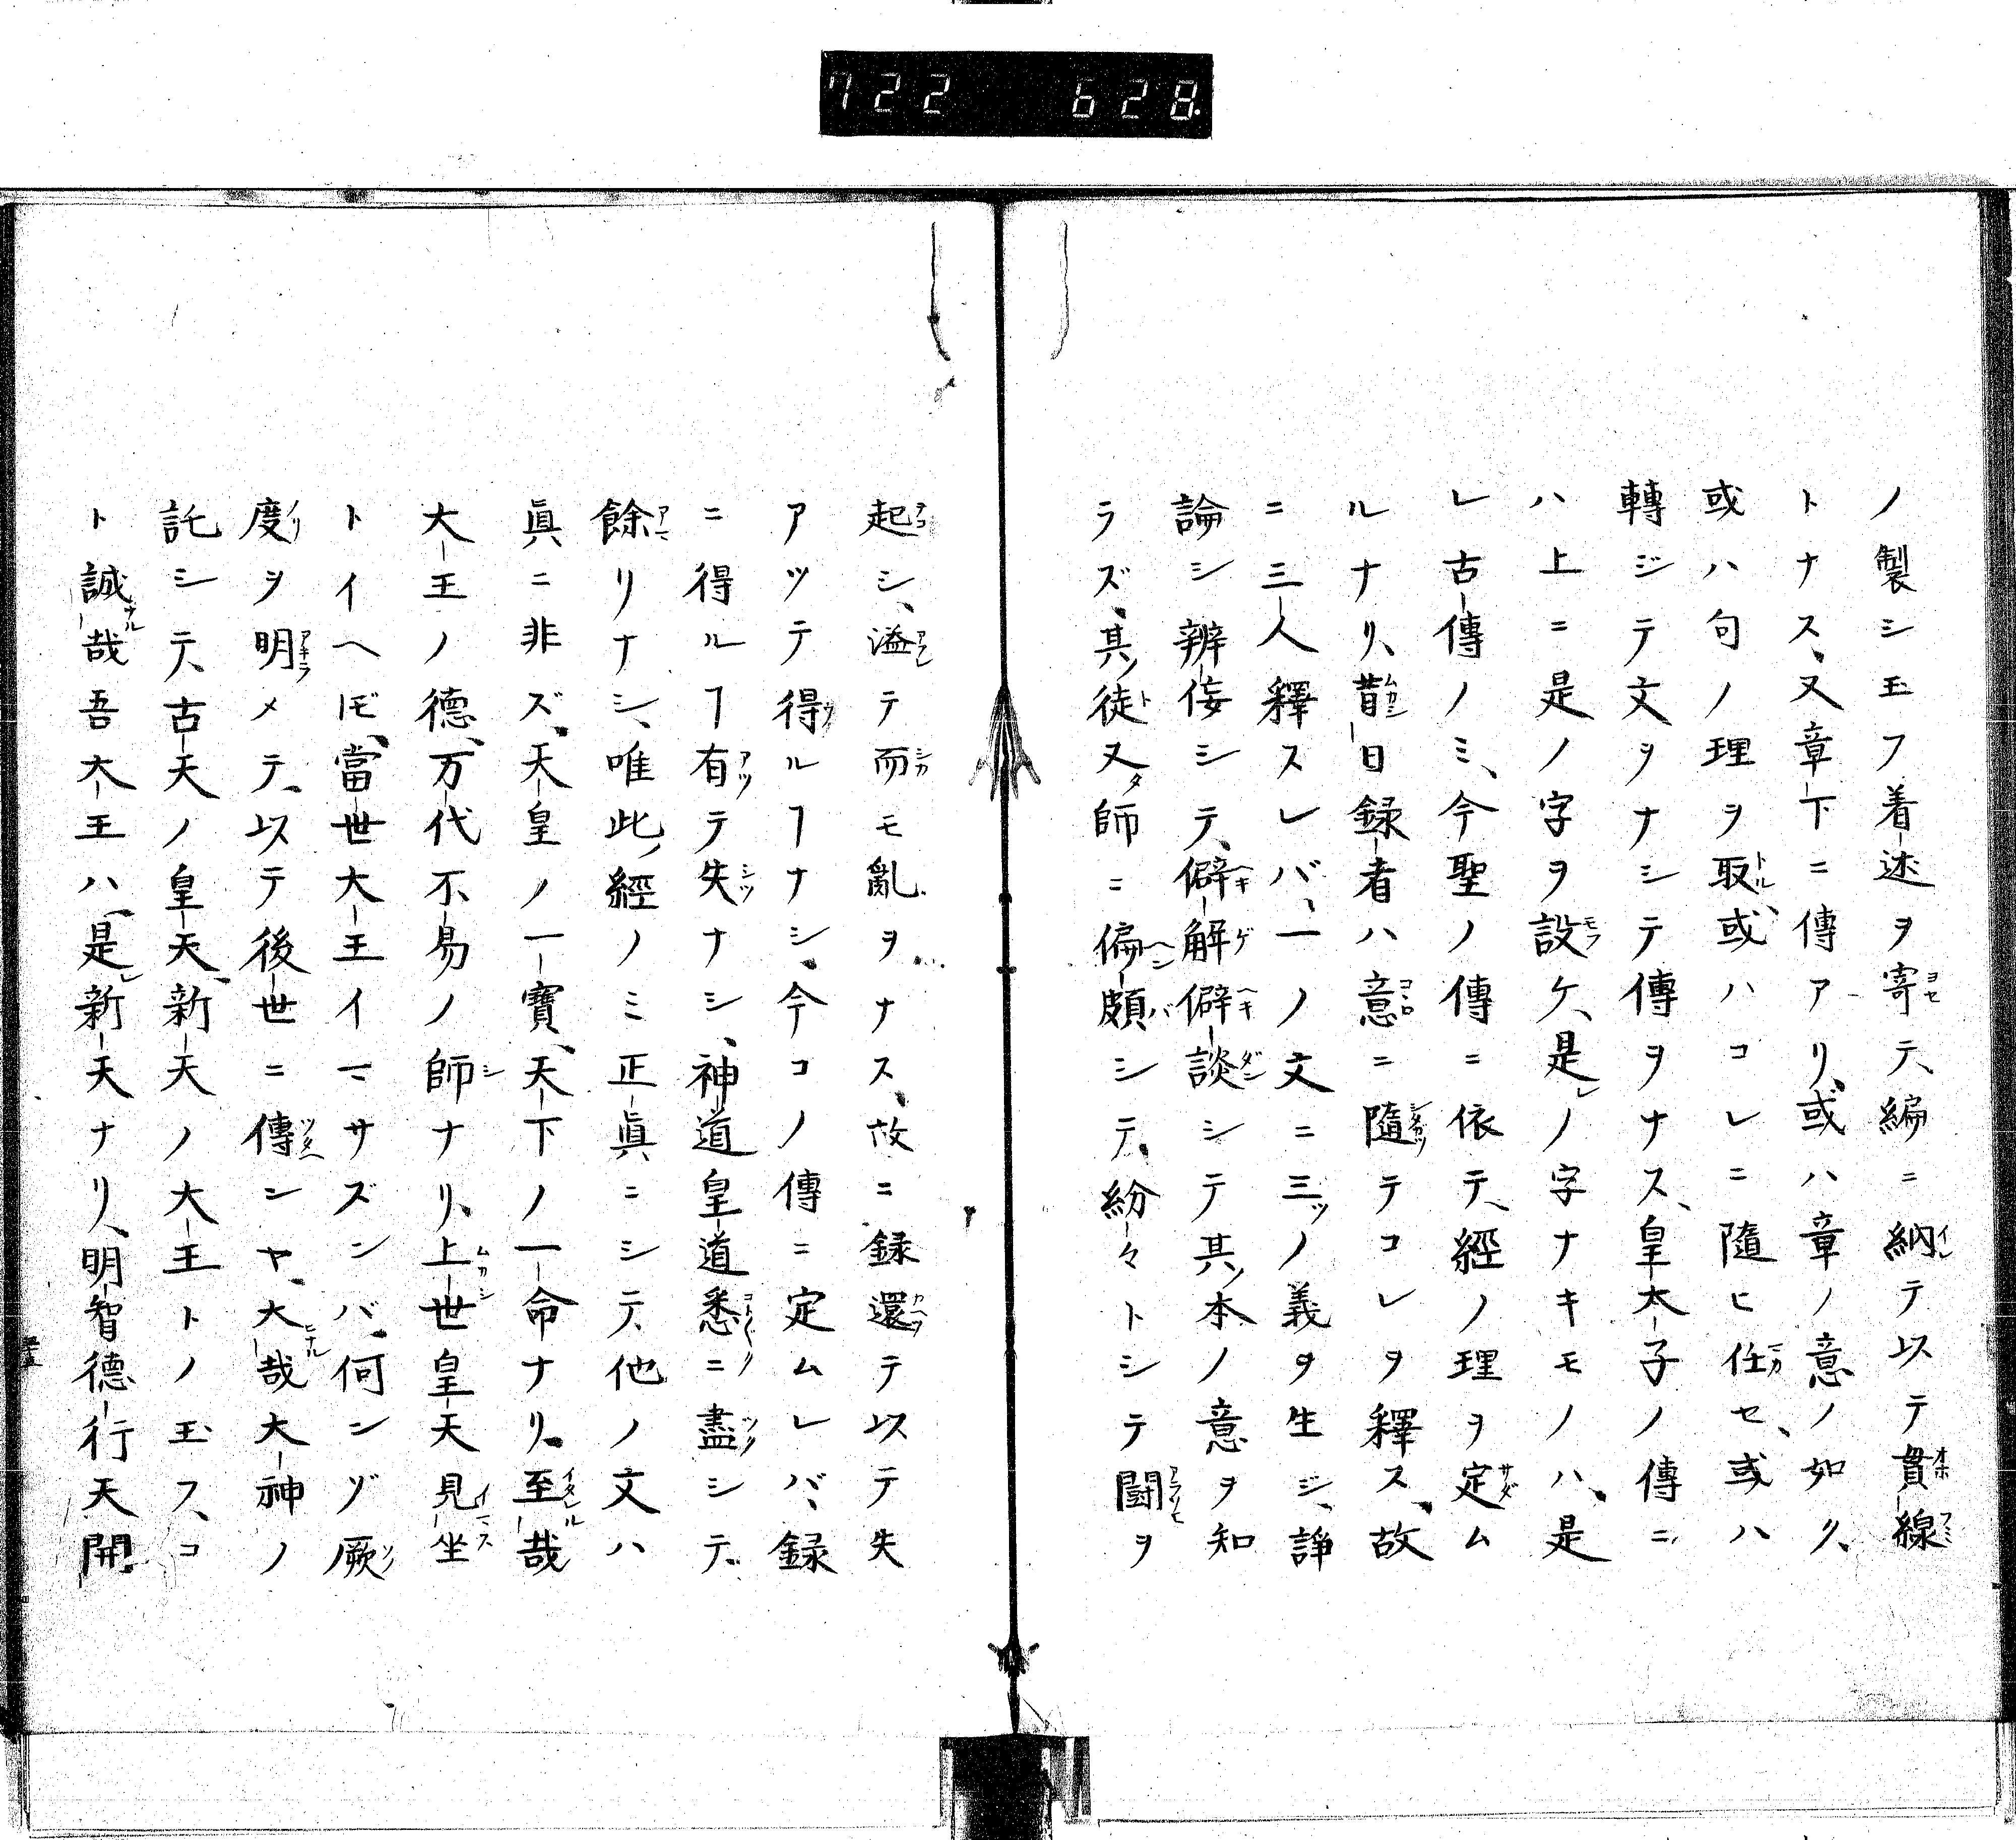 722 628
ノ製シ玉フ着述ヲ寄テ、編ニ納テ以テ貫線
トナス、又章下ニ傳アリ、或ハ章ノ意ノ如ク、
或ハ句ノ理ヲ取、或ハコレニ隨ヒ任セ、或ハ
轉ジテ文ヲナシテ傳ヲナス、皇太子ノ傳ニ
ハ上ニ是ノ字ヲ設ケ、是ノ字ナキモノハ、是
レ古傳ノミ、今聖ノ傳ニ依テ、經ノ理ヲ定ム
ルナリ、昔日録者ハ意ニ隨テコレヲ釋ス、故
ニ三人釋スレバ、一ノ文ニ三ツノ義ヲ生ジ、諍
論シ辨侫シテ、僻解僻談シテ其ノ本ノ意ヲ知
ラズ、其ノ徒又タ師ニ偏頗シテ、紛々トシテ鬪ヲ
起シ、溢テ而モ亂ヲナス、故ニ録還テ以テ失
アツテ得ルヿナシ、今コノ傳ニ定ムレバ、録
ニ得ルヿ有テ失ナシ、神道皇道悉ニ盡シテ、
餘リナシ、唯此ノ經ノミ正眞ニシテ、他ノ文ハ
眞ニ非ズ、天皇ノ一寶、天下ノ一命ナリ、至哉
大王ノ德、万代不易ノ師ナリ、上世皇天見坐
トイヘ𪜈、當世大王イマサズンバ、何ンゾ厥
度ヲ明メテ、以テ後世ニ傳ンヤ、大哉大神ノ
託シテ、古天ノ皇天、新天ノ大王トノ玉フ、コ
ト誠哉吾大王ハ、是レ新天ナリ、明智德行天開